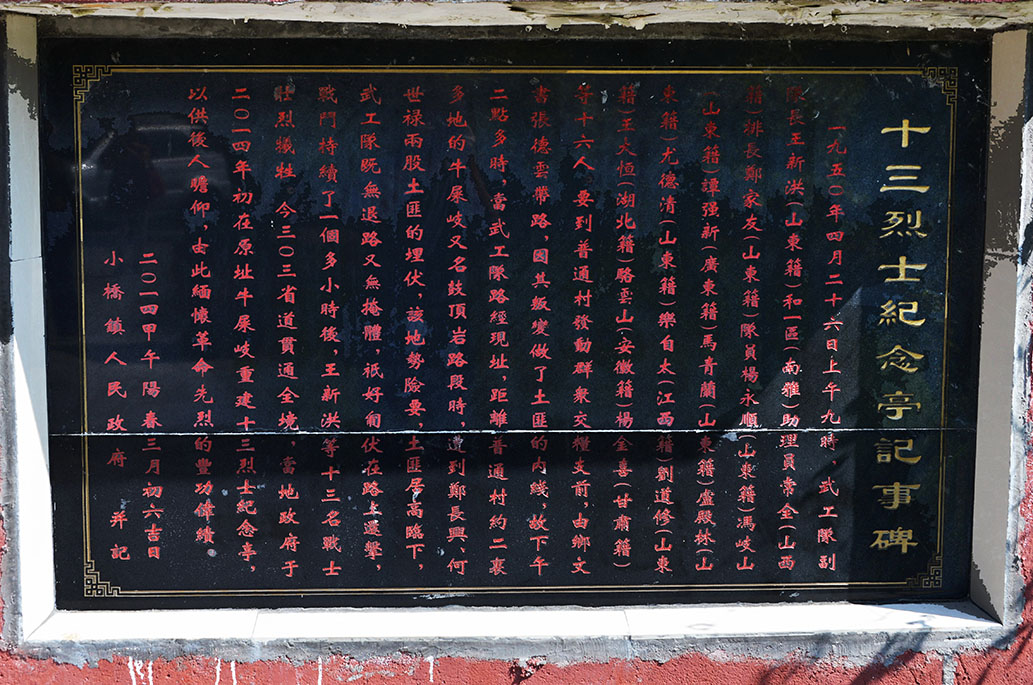 十三烈士紀念亭記事碑
一九五〇年四月二十六日上午九時，武工隊副
隊長王新洪（山東籍）和一區（南雅）助理員常全（山西
籍）排長鄭家友（山東籍）隊員楊永順（山東籍）馮岐山
（山東籍）譚强新（廣東籍）馬青蘭（山東籍）盧殿林（山
東籍）尤德清（山東籍）樂自太（江西籍）劉道修（山東
籍）王大恒（湖北籍）駱雲山（安徽籍）楊金喜（甘肅籍）
等十六人，要到普通村發動群衆交糧支前，由鄉文
書張德雲帶路，因其叛變做了土匪的内綫，故下午
二點多時，當武工隊路經現址，距離普通村約二裏
多地的牛屎岐又名鼓頂岩路段時，遭到鄭長興、何
世禄兩股土匪的埋伏，該地勢險要，土匪居高臨下，
武工隊既無退路又無掩體，祇好匍伏在路上還擊，
戰鬥持續了一個多小時後，王新洪等十三名戰士
壯烈犧牲。今三〇三省道貫通全境，當地政府于
二〇一四年初在原址牛屎岐重建十三烈士紀念亭，
以供後人瞻仰，由此緬懷革命先烈的豐功偉績。
二〇一四甲午陽春三月初六吉日
小橋鎮人民政府 并記